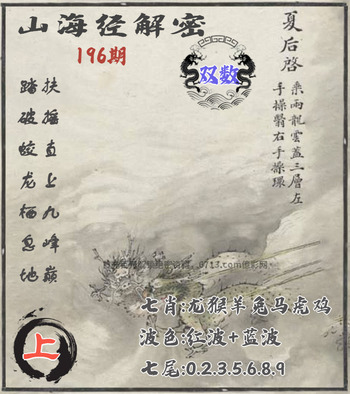 山海经解密
196期
双数
夏后啓
乘兩龍雲蓋三層左
手操翳右手操環
扶摇直上九峰巅
踏破蛟龙栖息地
七肖:龙猴羊兔马虎鸡
波色:红波+蓝波
七尾:0.2.3.5.6.8.9
上